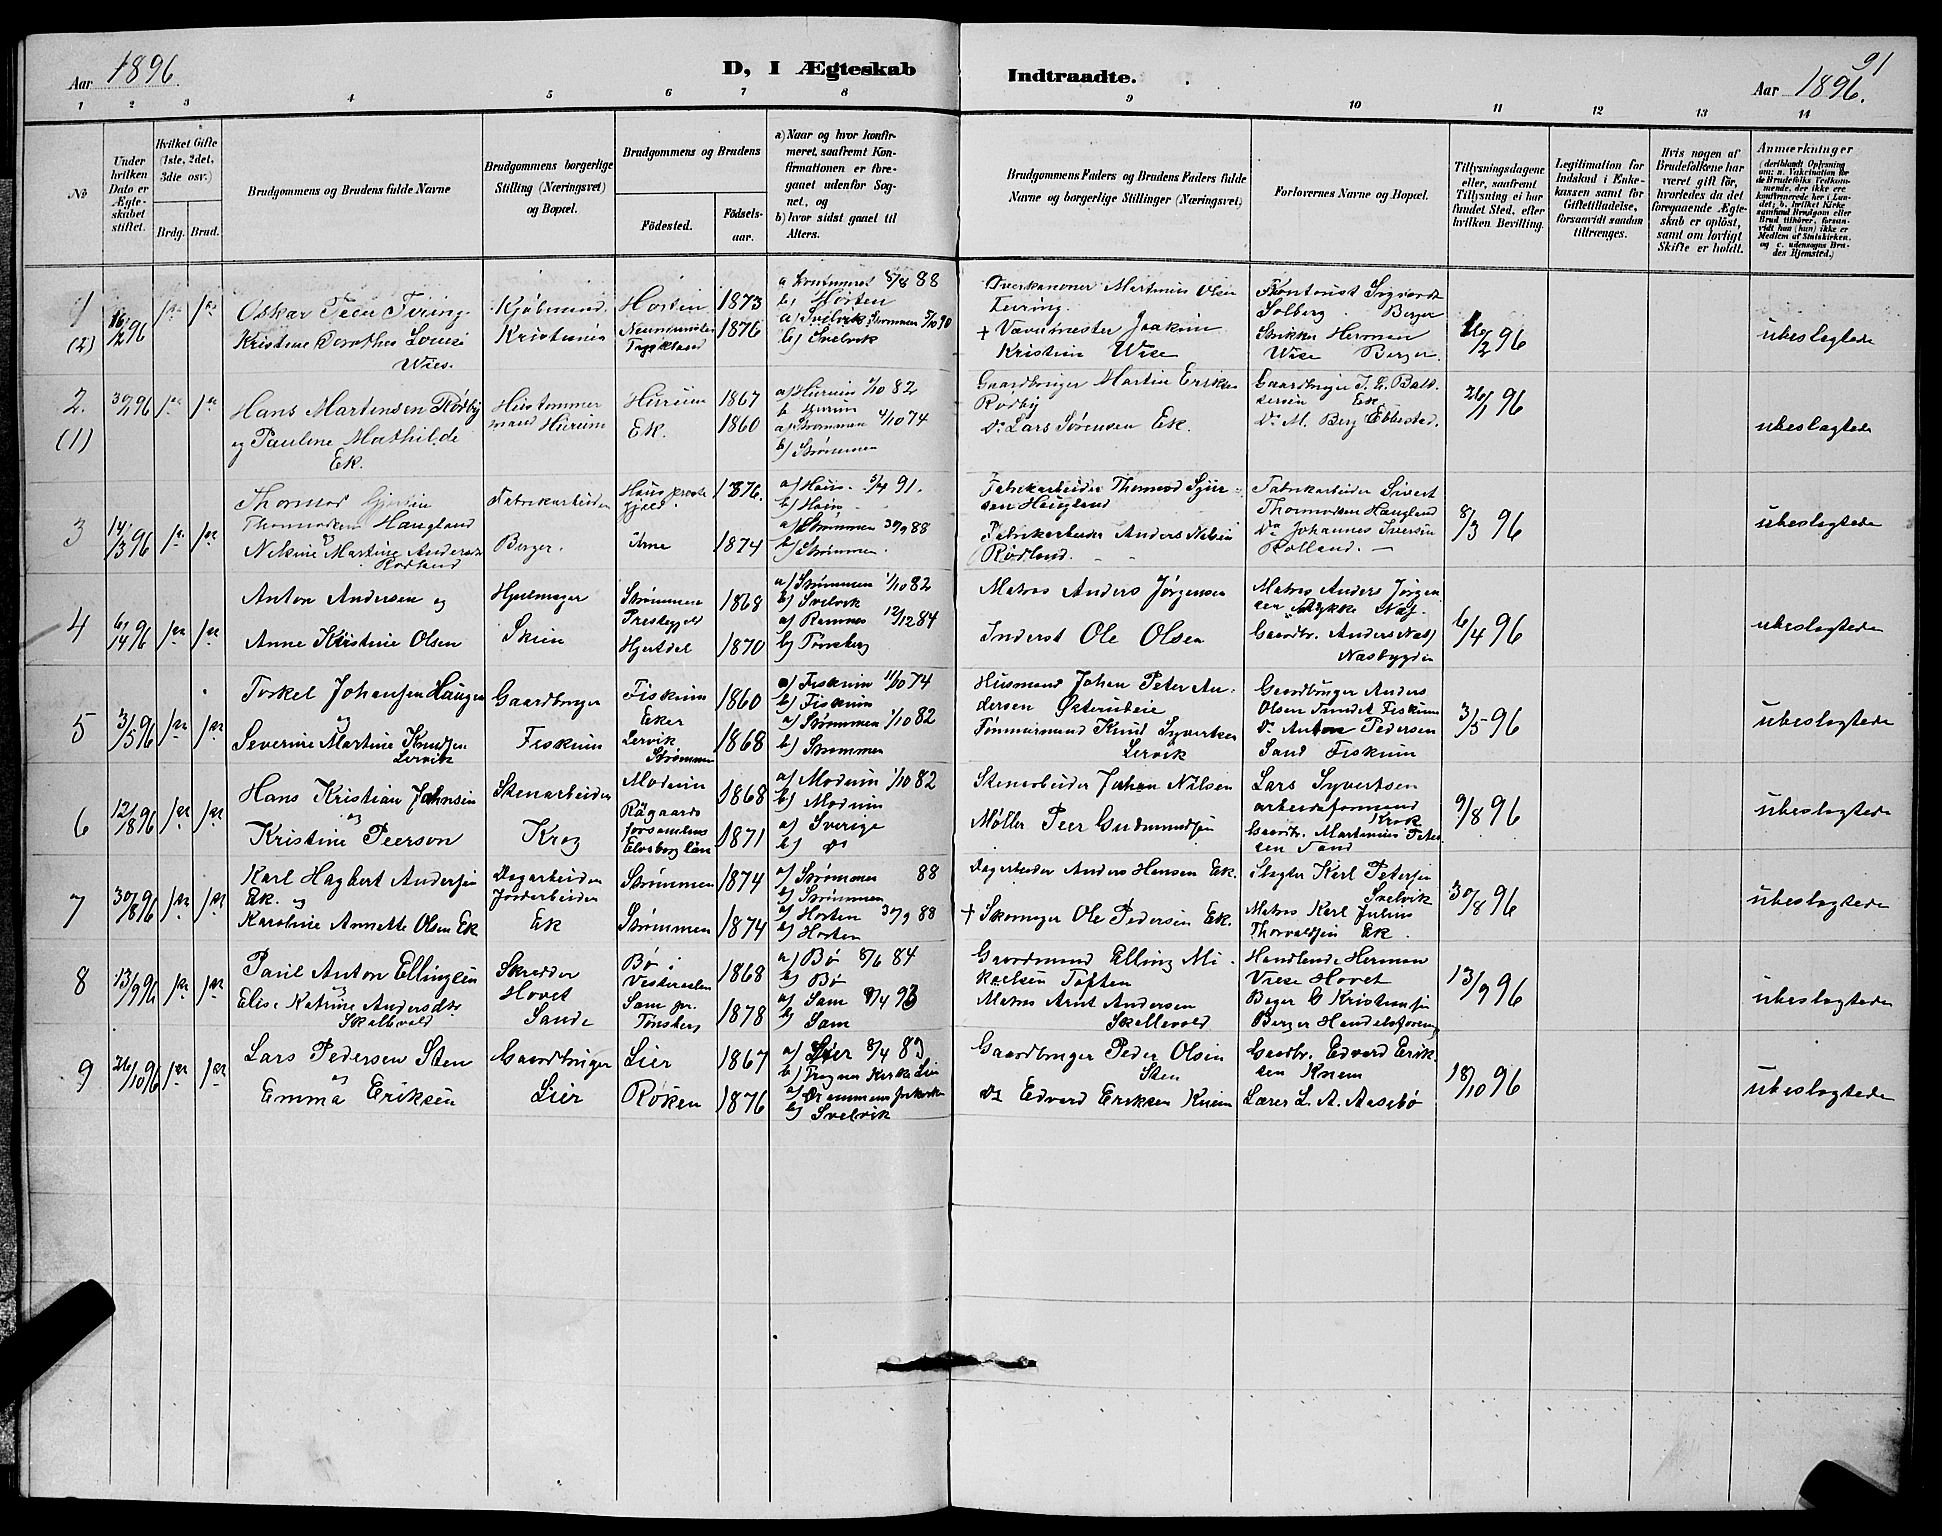 Aar 1896.
D, I Ægteskab Indtraadte.
91
Aar 1896.
1 2 3 4 5 6 7 8 9 10 11 12 13 14
No
Under hvilken Dato er Ægteskabet stiftet.
Hvilket Gifte (1ste, 2det, 3die osv.)
Brdg. Brud.
Brudgommens og Brudens fulde Navne
Brudgommens borgerlige Stilling (Næringsvei) og Bopæl.
Brudgommens og Brudens
Födested.
Födsels-aar.
a) Naar og hvor konfirmeret, saafremt Konfirmationen er foregaaet udenfor Sognet, og
b) hvor sidst gaaet til Alters.
Brudgommens Faders og Brudens Faders fulde Navne og borgerlige Stillinger (Næringsvei)
Forlovernes Navne og Bopæl.
Tillysningsdagene eller, saafremt Tillysning ei har fundet Sted, efter hvilken Bevilling.
Legitimation for Indskud i Enkekassen samt for Giftetilladelse, forsaavidt saadan tiltrænges.
Hvis nogen af Brudefolkene har været gift för, hvorledes da det foregaaende Ægteskab er oplöst, samt om lovligt Skifte er holdt.
Anmærkninger
(deriblandt Oplysning om: a. Vakcination for de Brudefolks Vedkommende, der ikke ere konfirmerede her i Landet; b. hvilket Kirkesamfund Brudgom eller Brud tilhörer, forsaavidt han (hun) ikke er Medlem af Statskirken, og c. udensogns Brudes Hjemsted.)
1 (2) 16/2 96 1ste 1ste
Oskar
Kristine Dorothea Louise
Kjøbmand
Kristiania
Horten 1873
1876
b) Horten
a) Svelvik Strømmen 5/10 90
b) Svelvik
Martinius Olsen
+ Værumester Joakim
Kristian Wise
Kontorist Sigvardt
Solberg. Berger
Snikker Herman
Wise Berger.
16/2 96
ubeslægtede
2. (1) 30/1 96 1ste 1ste
Hans Martensen Rødby
og Pauline Mathilde
Ek.
Hustømmermand Hurum
Hurum 1867
Ek. 1860
a) Hurum 1/10 82
b) Hurum
a) Strømmen 4/10 74
b) Strømmen
Gaardbruger Martin Eriksen
Rødby
Do Lars Sørensen Ek.
Do M. Berg Ebbestad.
26/1 96
ubeslægtede
3 14/3 96 1ste 1ste
Thormodsen Haugland
og
Nilsine Martine Andersdtr
Rødland
Fabrikarbeider
Berger.
Haus Præstegjeld. 1876.
Arne 1874
a) Haus. 5/4 91.
b) Haus
a) Strømmen 30/9 88
b) Strømmen.
Fabrikarbeider Thormod
Haugland
Fabrikarbeider Anders Nilsen
Rødland.
Fabrikarbeider Sivert
Thormodsen Haugland
Do Johannes Iversen
Rolland.
8/3 96
ubeslægtede
4 6/4 96 1ste 1ste
Anton Andersen og
Anne Kristine Olsen
Hjulmager
Skien
Strømmens Prestegjeld 1868
Hjertdal 1870
a) Strømmen 1/10 82
b) Svelvik
a) Ramnes 12/12 84
b) Tønsberg
Matros Anders Jørgensen
Inderst Ole Olsen
Matros Anders Jørgensen
Næs.
Gaardbr. Anders Næs
Næsbygden
6/4 96
ubeslægtede
5 3/5 96 1ste 1ste
Torkel Johansen Haugen
og
Severine Martine Knudsen
Lervik
Gaardbruger
Fiskum
Fiskum Eker 1860
Lervik Strømmen 1868
a) Fiskum 11/10 74
b) Fiskum
a) Strømmen 1/10 82
b) Strømmen
Husmand Johan Peter Andersen
Tømmermand Knud Syvertsen
Lervik
Gaardbruger Anders
Olsen Sundet Fiskum
Do Anton Pedersen
Sand Fiskum
3/5 96
ubeslægtede
6 12/8 96 1ste 1ste
Hans Kristian Johnsen
og
Kristine Peerson
Stenarbeider
Krog
Modum 1868
Rågaards forsamlings Elvsborg län 1871
a) Modum 1/10 82
b) Modum
a) Sverige
b) do
Stenarbeider Johan Nilsen
Møller Peer Gudmundsen
Lars Syvertsen
arbeidsformand
Krok
Gaardbr. Martinius Petersen Sand
9/8 96
ubeslægtede
7 30/8 96 1ste 1ste
Karl Hagbert Andersen
Ek. og
Karoline Annette Olsen Ek
Dagarbeider
Jordarbeider
Ek
Strømmen 1874
Strømmen 1874
a) Strømmen 88
b) Strømmen
a) Horten 30/9 88
b) Horten
Dagarbeider Anders Hansen Ek.
+ Skomager Ole Pedersen Ek.
Slagter Karl Petersen
Svelvik
Matros Karl Julius
Thorvaldsen Ek.
30/8 96
ubeslægtede
8 13/9 96 1ste 1ste
Paul Anton Ellingsen
og
Elise Katrine Andersdtr
Skallevold
Skredder
Hovet
Sande
Bø i Vesteraalen 1868
Sem pr. Tønsberg 1878
a) Bø 8/6 84
b) Bø
a) Sem 8/4 93
b) Sem
Gaardmand Elling Mikkelsen Toften
Matros Arnt Andersen
Skallevold
Handlende Herman
Viese Hovet
Bager G Kristiansen
Berger Handelsforening
13/9 96
ubeslægtede
9 26/10 96 1ste 1ste
Lars Pedersen Sten
og
Emma Eriksen
Gaardbruger
Lier
Lier 1867
Røken 1876
a) Lier 8/4 83
b) Frogner Kirke Lier
a) Drammens frikirke
b) Svelvik
Gaardbruger Peder Olsen
Sten
Do Edvard Eriksen Knem
Gaardbr. Edvard Eriksen Knem
Lærer L. A. Aasebø
18/10 96
ubeslægtede